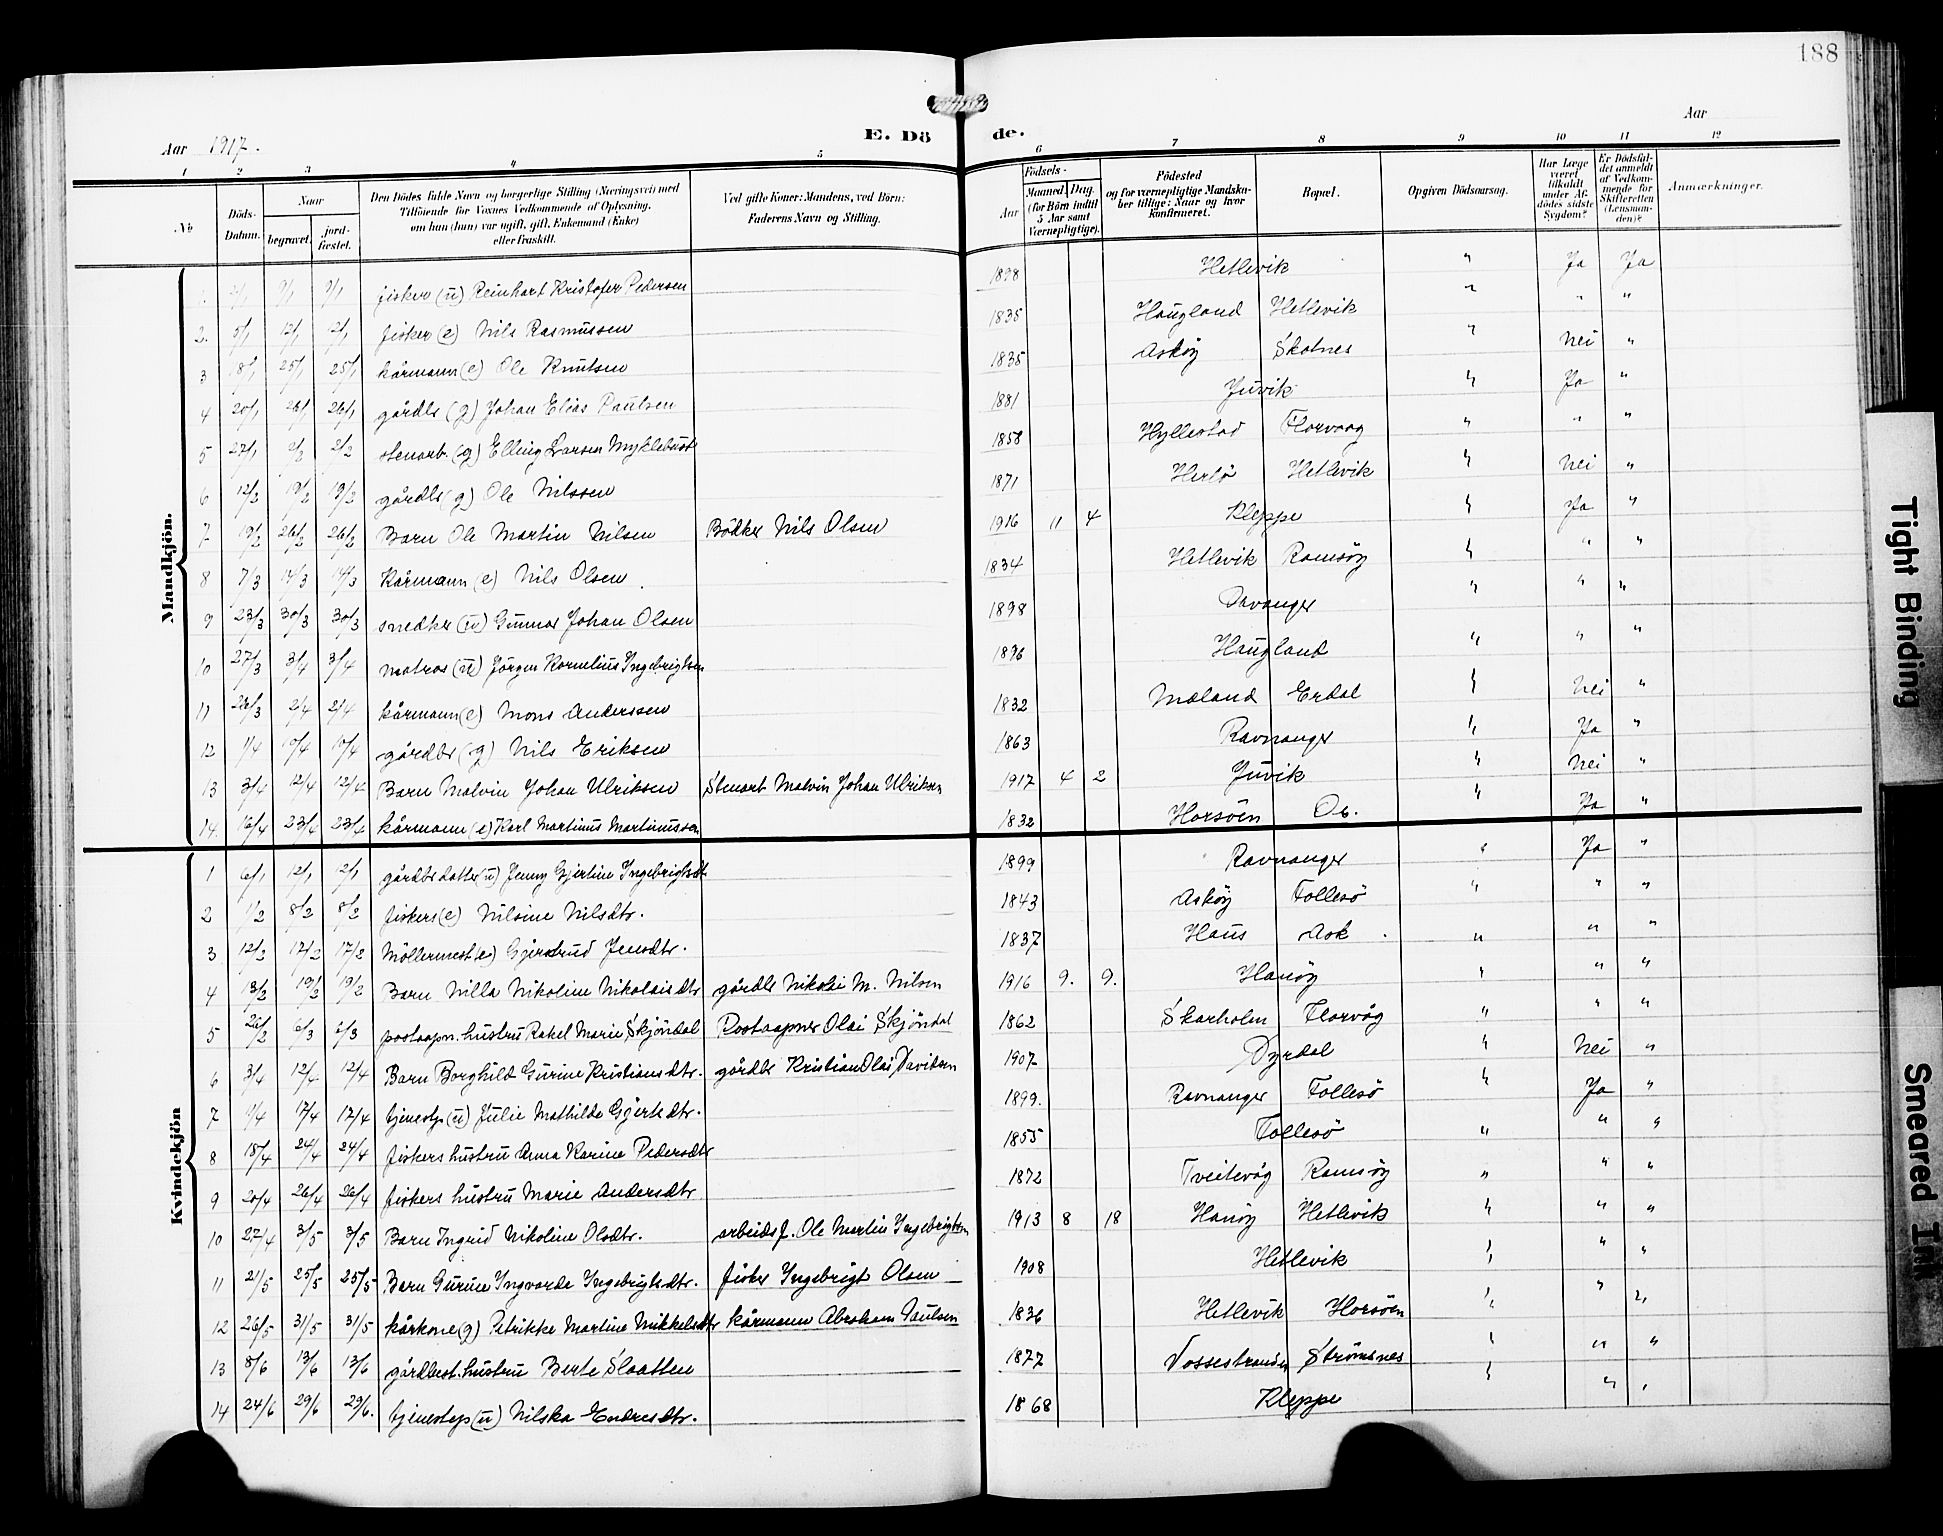 188
Aar 1917.
E. Dö de.
Aar
1 2 3 4 5 6 7 8 9 10 11 12
№
Döds-Datum.
Naar
begravet.
jord-fæstet.
Den Dödes fulde Navn og borgerlige Stilling (Næringsvei) med Tilföiende for Voxnes Vedkommende af Oplysning, om han (hun) var ugift, gift, Enkemand (Enke) eller fraskilt.
Ved gifte Koner: Mandens, ved Börn: Faderens Navn og Stilling.
Födsels-
Aar
Maaned. Dag. (for Börn indtil 5 Aar samt Værnepligtige).
Födested og for værnepligtige Mandskaber tillige: Naar og hvor konfirmeret.
Bopæl.
Opgiven Dödsaarsag.
Har Læge været tilkaldt under Afdödes sidste Sygdom?
Er Dödsfaldet anmeldt af Vedkommende for Skifteretten (Lensmanden)?
Anmærkninger.
Mandkjön.
1. fisker (u) Reinhart Kristofer Pedersen 1898 Hetlevik " Ja Ja
2. 5/1 12/1 12/1 fisker (e) Nils Rasmussen 1835 Haugland Hetlevik " " "
3 18/1 25/1 25/1 kårmann (e) Ole Knutsen 1835 Askøy Skatnes " Nei "
4 20/1 26/1 26/1 gårdbr (g) Johan Elias Paulsen 1881 Juvik " Ja "
5 27/1 2/2 2/2 stenarb. (g) Elling Larsen Myklebust 1858 Hyllestad Florvaag " " "
6 12/2 19/2 19/2 gårdbr (g) Ole Nilssen 1871 Herlö Hetlevik " Nei "
7 19/2 26/2 26/2 Barn Ole Martin Nilsen Bödker Nils Olsen 1916 11 4 Kleppe " Ja "
8 7/3 14/3 14/3 Kårmann (e) Nils Olsen 1834 Hetlevik Ramsöy " " "
9 23/3 30/3 30/3 snedker (u) Gunnar Johan Olsen 1898 Davanger " " "
10 27/3 3/4 3/4 matros (u) Jörgen Kornelius Ingebrigtsen 1896 Haugland " " "
11 26/3 2/4 2/4 kårmann (e) Mons Anderssen 1832 Mæland Erdal " Nei "
12 1/4 10/4 10/4 gårdbr (g) Nils Eriksen 1863 Ravnanger " Ja "
13 3/4 12/4 12/4 Barn Malvin Johan Ulriksen Stenarb Malvin Johan Ulriksen 1917 4 2 Juvik " Nei "
14 16/4 23/4 23/4 kårmann (e) Karl Martinus Martinussen 1832 Horsöen Do. " Ja "
Kvindekjön
1 6/1 12/1 12/1 gårdbr datter (u) Jenny Gjertine Ingebrigtsdtr 1899 Ravnanger " Ja "
2 1/2 8/2 8/2 fiskers (e) Nilsine Nilsdtr. 1843 Askøy Follesö " " "
3 12/2 17/2 17/2 Möllermest (e) Gjertrud Jensdtr. 1837 Haus Ask " " "
4 13/2 19/2 19/2 Barn Nilla Nikoline Nikolaisdtr gårdbr Nikolai M. Nilsen 1916 9. 9. Hanöy " " "
5 26/2 6/3 6/3 postaapn. hustru Rakel Marie Skjöndal Postaapner Olai Skjöndal 1862 Skarholm Florvåg " " "
6 3/4 12/4 12/4 Barn Borghild Gurine Kristiansdtr. gårdbr Kristian Olai Davidsen 1907 Dyrdal " Nei "
7 9/4 17/4 17/4 tjenestp (u) Julie Mathilde Gjertsdtr. 1899. Ravnanger Follesö " Ja "
8 18/4 24/4 24/4 fiskers hustru Anna Karine Pedersdtr 1855 Follesö " " "
9 20/4 26/4 26/4 fiskers hustru Marie Andersdtr. 1872 Tveitevåg Ramsöy " " "
10 27/4 3/5 3/5 Barn Ingrid Nikoline Olsdtr. arbeidsf. Ole Martin Ingebrigtsen 1913 8 18 Hanöy Hetlevik " " "
11 21/5 25/5 25/5 Barn Gurine Ingvarda Ingebrigtsdtr. fisker Ingebrigt Olsen 1908 Hetlevik " " "
12 26/5 31/5 31/5 kårkone (g) Petrikke Martine Mikkelsdtr kårmann Abraham Paulsen 1836 Hetlevik Horsöen " " "
13 8/6 13/6 13/6 gårdbest. hustru Berte Slaatten 1877 Vossestranden Strömsnes " " "
14 24/6 29/6 29/6. tjenestep (u) Nilska Endresdtr. 1868 Kleppe " " "
Tight Binding
Smeared Ink